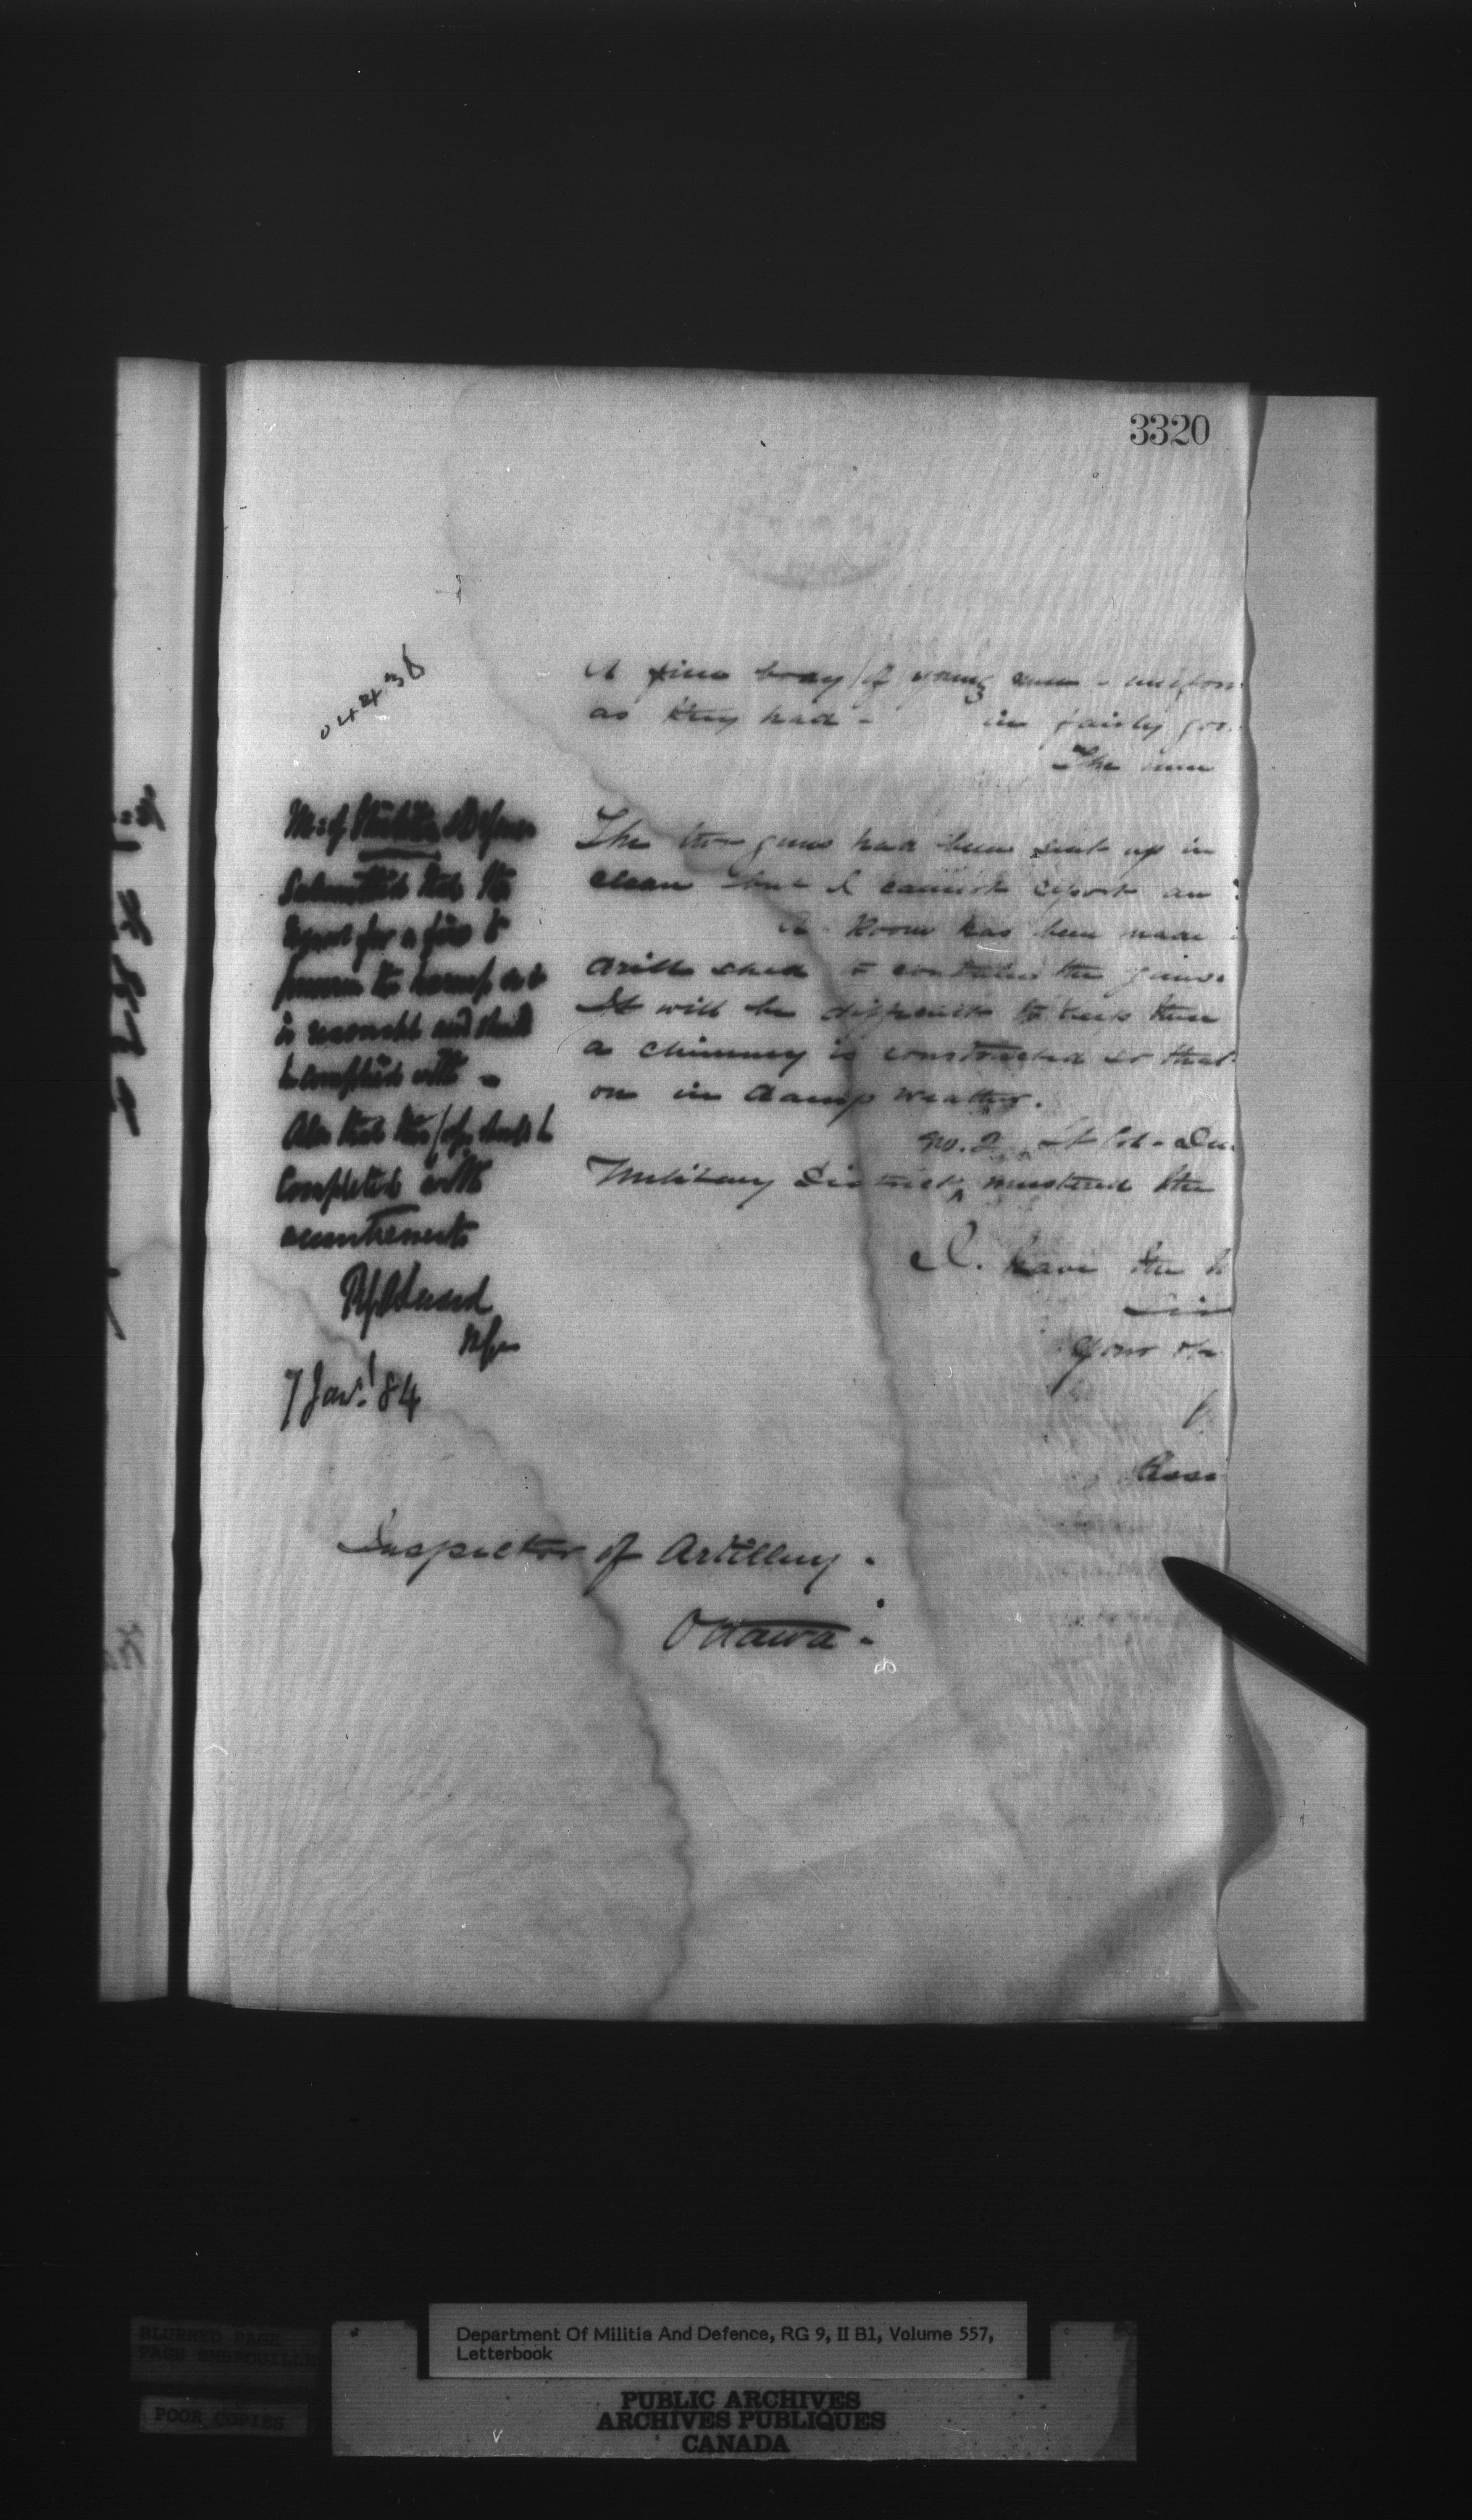 3320
04436
A fine body of young men - uniform
as they had - in fairly goo
The
The two guns had been sent up in
clean but I cannot report an
A Room has been made
drill shed to contain the guns.
It will be difficult to keep them
a chimney is constructed so that
on in damp weather.
No. 2 Lt Col -
Military District mustered the
I. have the h
Sir
Your
Assi
M: of Militia & Defence
Submitted that the
request for a fire to
preserve the harness
is reasonable and should
be complied with -
Also that the should be
completed with
accoutrements
7 Jany. '84
Inspector of Artillery.
Ottawa -
BLURRED PAGE
PAGE EMBROUILLE
POOR COPIES
Department Of Militia And Defence, RG 9, II B1, Volume 557,
Letterbook
PUBLIC ARCHIVES
ARCHIVES PUBLIQUES
CANADA